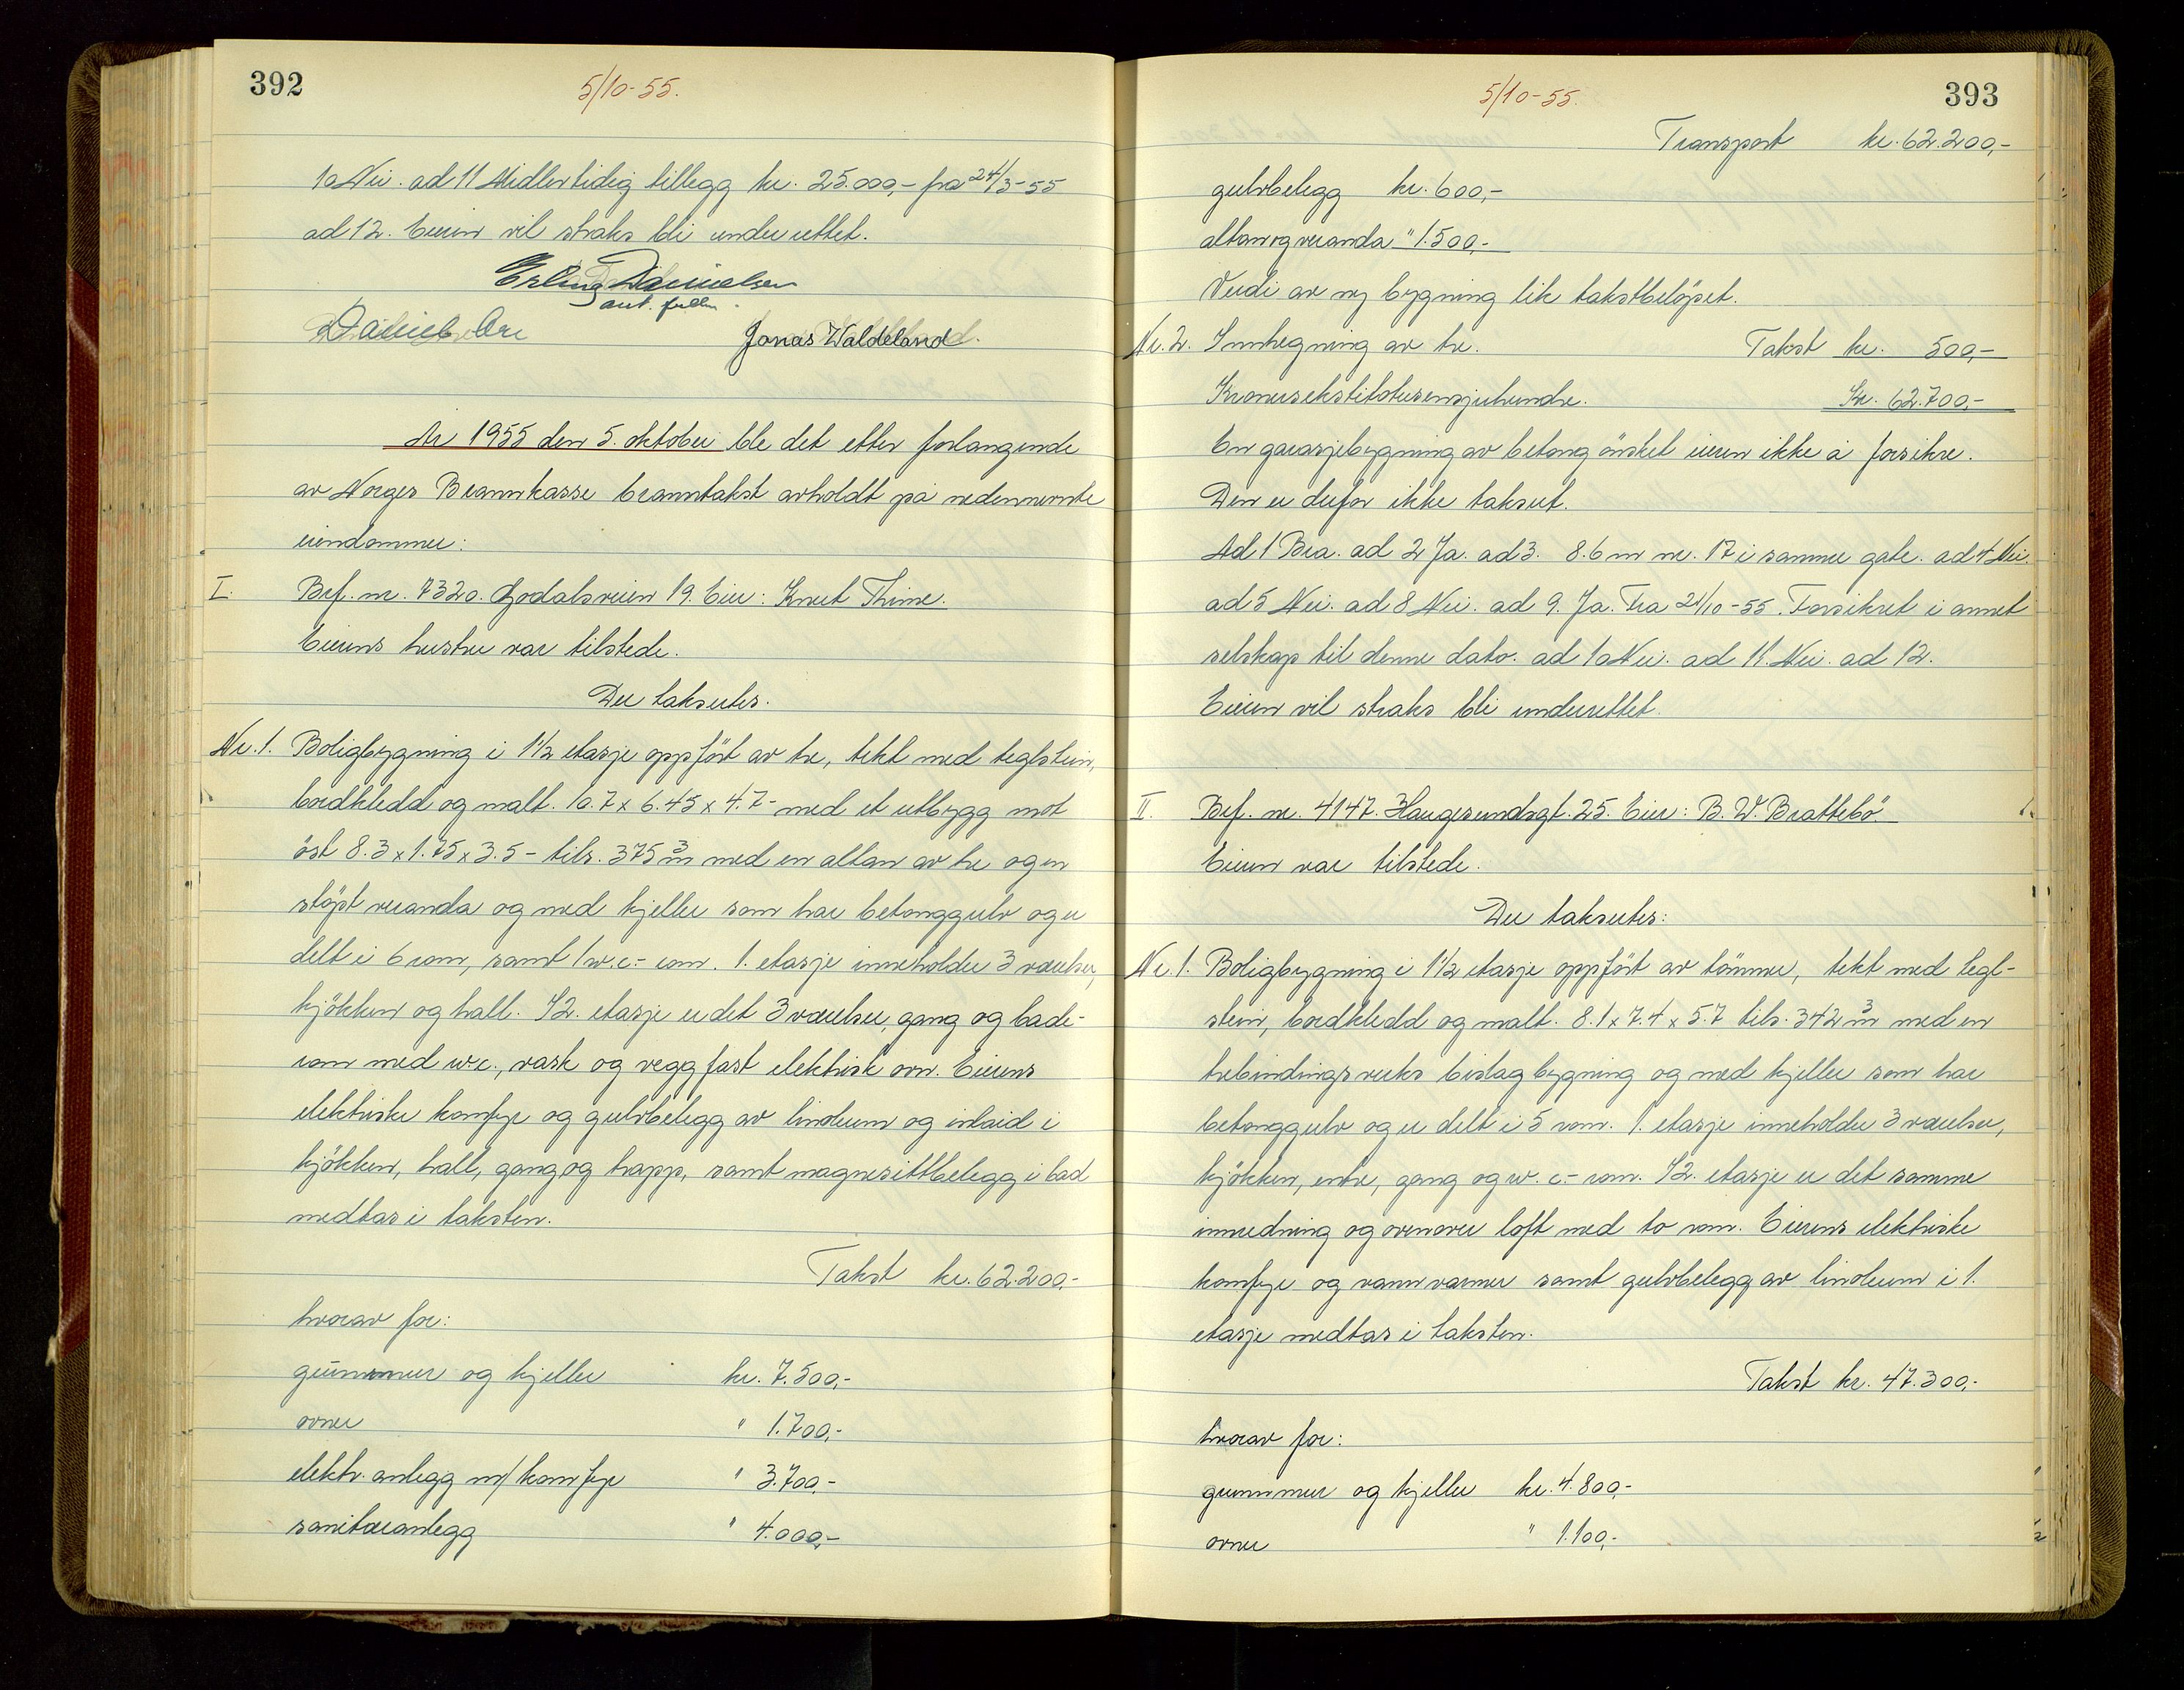 392
5/10-55.
10 Nei. ad 11 Midlertidig tillegg kr. 25.000,- fra 24/3-55
ad 12. Eieren vil straks bli underrettet.
Erling Danielsen
aut. fullm.
Jonas Waldeland.
År 1955 den 5. oktober ble det etter forlangende
av Norges Brannkasse branntakst avholdt på nedennevnte
eiendommer:
I. Bef. nr. 7320. Godalsveien 19. Eier: Knut Time.
Eierens hustru var tilstede.
Der takseres.
Nr. 1. Boligbygning i 1½ etasje oppført av tre, tekt med teglstein,
bordkledd og malt. 10.7 x 6.45 x 4.7 - med et utbygg mot
öst 8.3 x 1.75 x 3.5 - tils. 375 m³ med en altan av tre og en
støpt veranda og med kjeller som har betonggulv og er
delt i 6 rom, samt 1 w.c.- rom. 1. etasje inneholder 3 værelser,
kjökken og hall. I 2. etasje er det 3 værelser, gang og bade-
rom med w.c., vask og veggfast elektrisk ovn. Eierens
elektriske komfyr og gulvbelegg av linoleum og inlaid i
kjökken, hall, gang og trapp, samt magnesittbelegg i bad
medtas i taksten.
Takst kr. 62.200,-
hvorav for:
grunnmur og kjeller kr. 7.500,-
ovner " 1.700,-
elektr. anlegg m/ komfyr " 3.700,-
sanitæranlegg " 4.000,-
5/10-55.
393
Transport kr. 62.200,-
gulvbelegg kr. 600,-
altan og veranda " 1.500,-
Verdi av ny bygning lik takstbeløpet.
Nr. 2. Innhegning av tre. Takst kr. 500,-
Kronersekstitotusensjuhundre. Kr. 62.700,-
En garasjebygning av betong önsket eieren ikke å forsikre.
Den er derfor ikke taksert.
Ad 1 Bra. ad 2 Ja. ad 3. 8.6 m nr. 17 i samme gate. ad 4 Nei.
ad 5 Nei. ad 8 Nei. ad 9. Ja. Fra 21/10-55. Forsikret i annet
selskap til denne dato. ad 10 Nei. ad 11. Nei. ad 12.
Eieren vil straks bli underrettet.
II. Bef. nr. 4147. Haugesundsgt. 25. Eier: B. W. Brattebö
Eieren var tilstede.
Der takseres:
Nr. 1. Boligbygning i 1½ etasje oppfört av tömmer, tekt med tegl-
stein, bordkledd og malt. 8.1 x 7.4 x 5.7 tils. 342 m³ med en
trebindingsverks bislagbygning og med kjeller som har
betonggulv og er delt i 5 rom. 1. etasje inneholder 3 værelser,
kjökken, entre, gang og w.c.- rom. I 2. etasje er det samme
innredning og ovenover loft med to rom. Eierens elektriske
komfyr og vannvarmer samt gulvbelegg av linoleum i 1.
etasje medtas i taksten.
Takst kr. 47.300,-
hvorav for:
grunnmur og kjeller kr. 4.800,-
ovner " 1.100,-